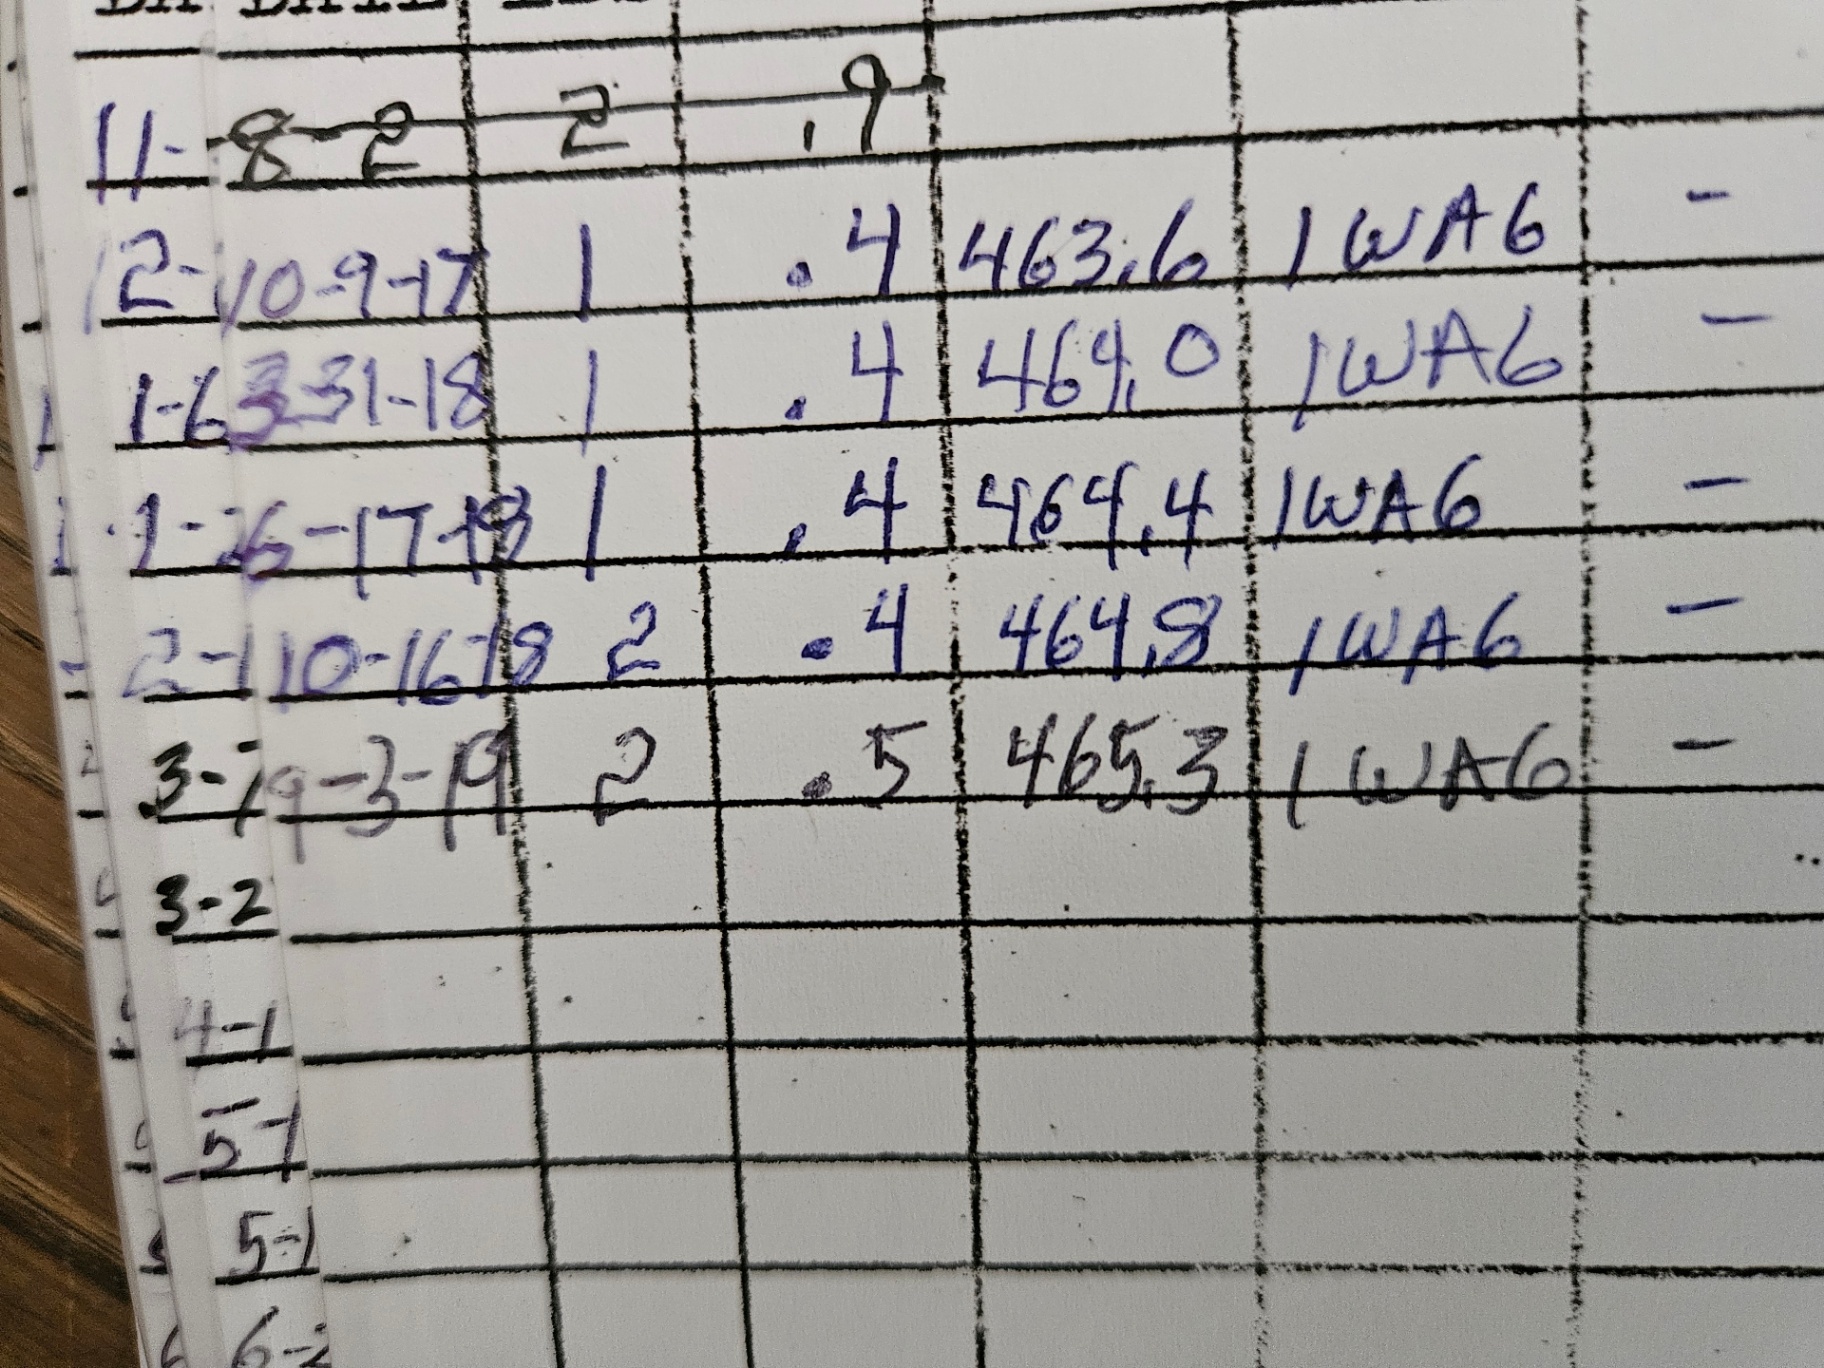 DATE
11- 8-2 2 .9
12- 10-9-17 1 .4 463.6 1WA6 -
1-6 3-31-18 1 .4 464.0 1WA6 -
1-2 6-17-18 1 .4 464.4 1WA6 -
2-1 10-16-18 2 .4 464.8 1WA6 -
3-1 9-3-19 2 .5 465.3 1WA6 -
3-2
4-1
5-1
5-1
6-2